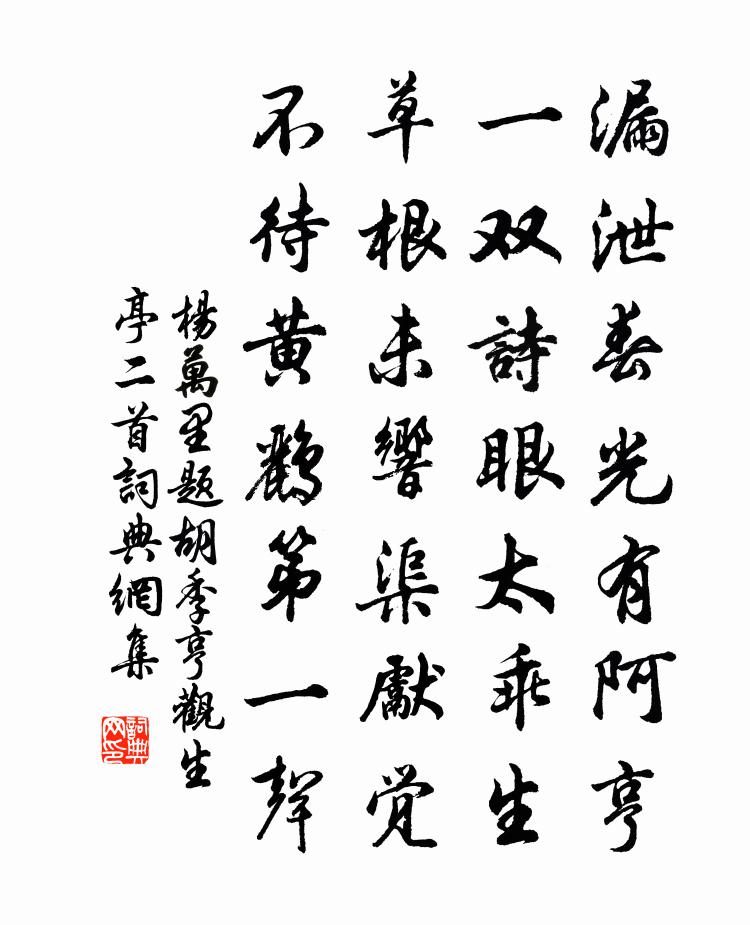 漏泄春光有阿亨
一双詩眼太乖生
草根未響渠獻觉
不待黄鸝第一聲
楊萬里题胡季亨觀生
亭二首詞典網集
詞典网印